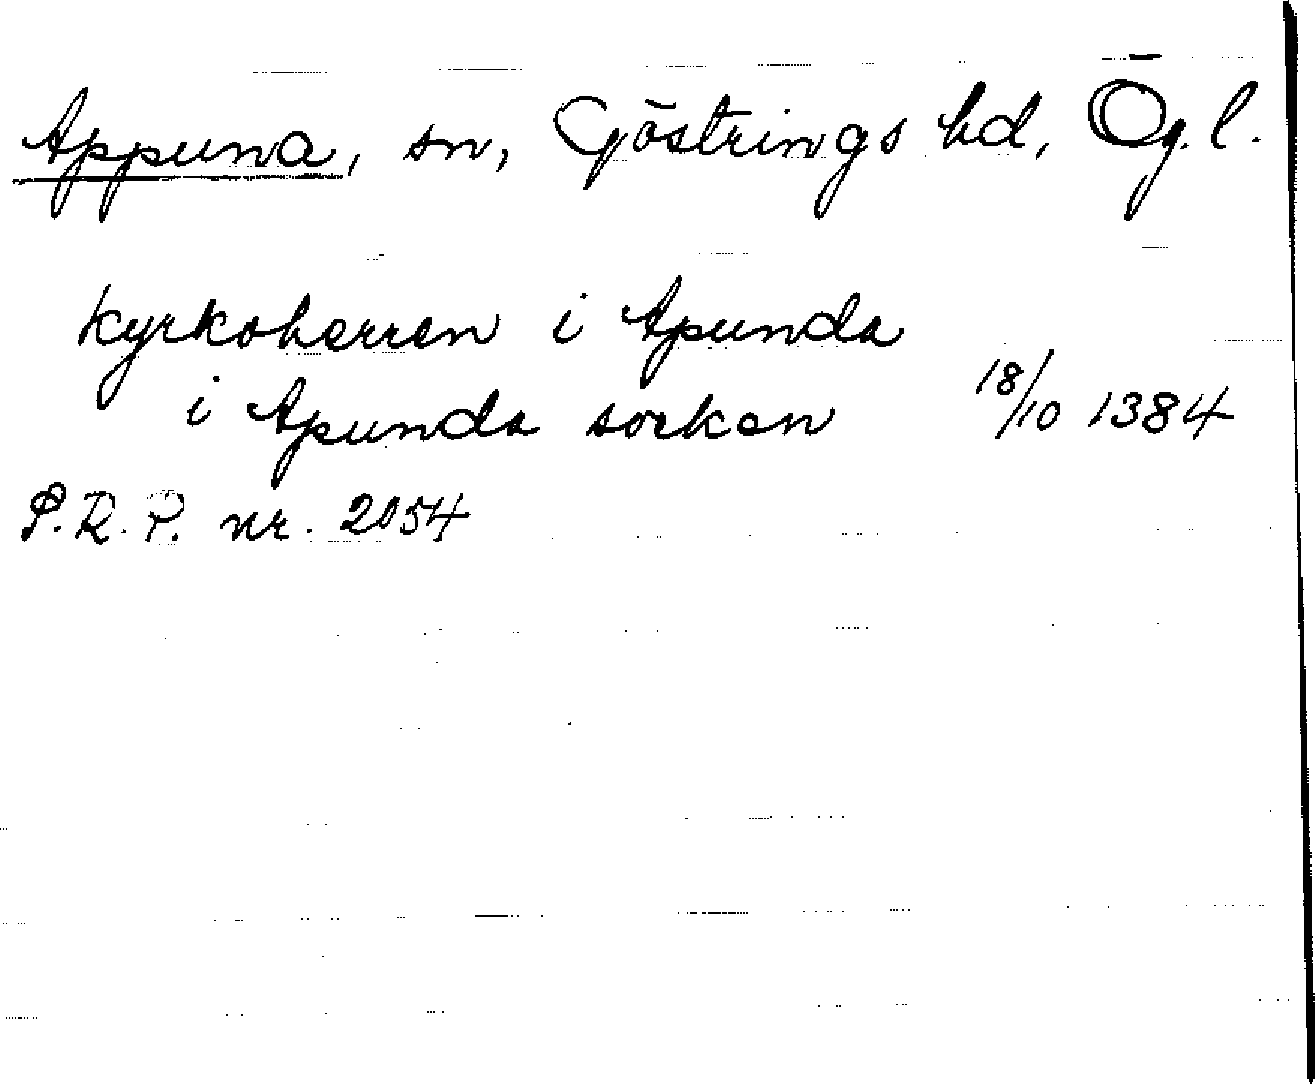 Appuna, sn, Göstrings hd, Ög.l.
kyrkoherren i Apunda
i Apunda sorken 18/10 1384
S.R.P. nr. 2054